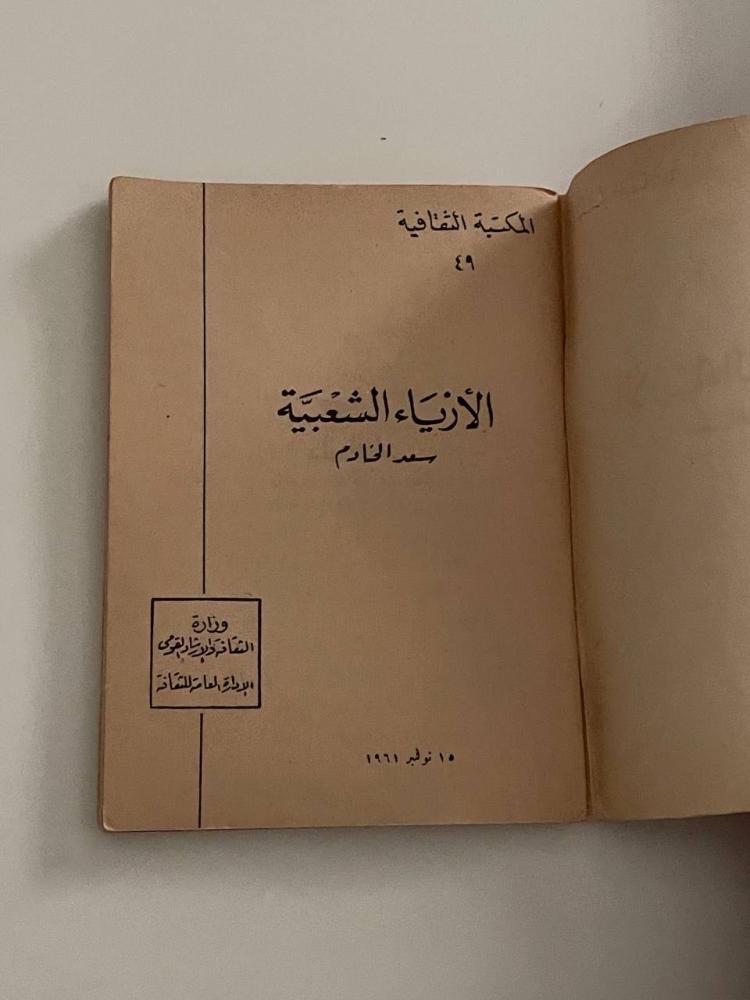 المكتبة الثقافية
٤٩
الأزياء الشعبيّة
سعد الخادم
وزارة
الثقافة والإرشاد القومى
الإدارة العامة للثقافة
١٥ نوفمبر ١٩٦١